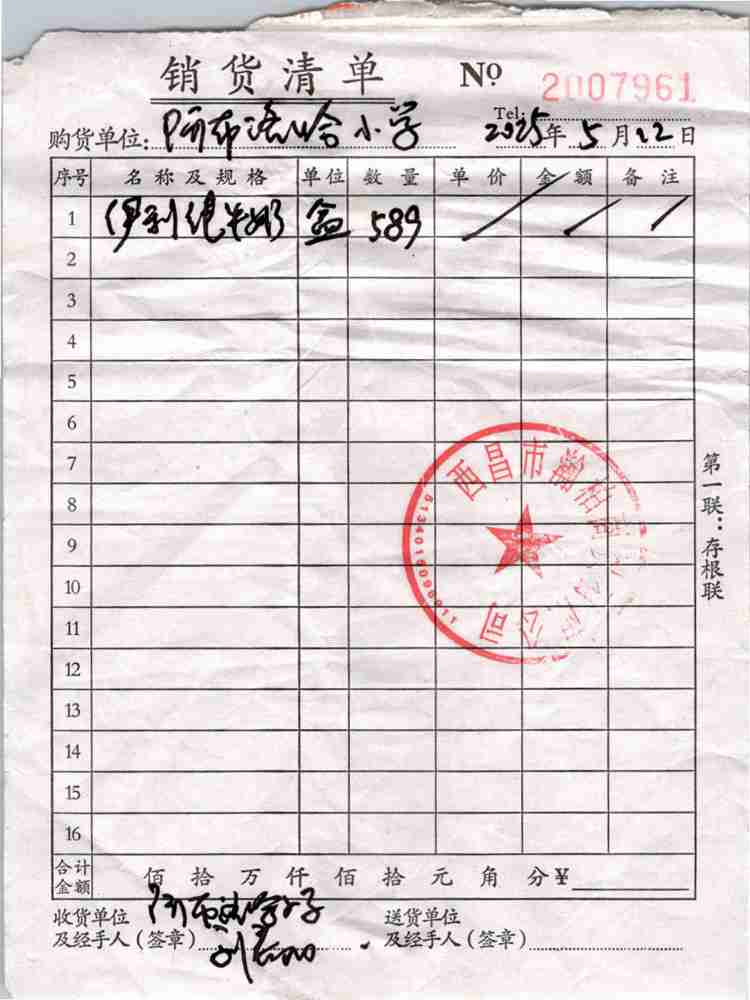 销货清单 № 2007961
Tel:
购货单位: 阿布洛哈小学 2025年5月22日
序号 名称及规格 单位 数量 单价 金额 备注
1 伊利纯牛奶 盒 589 / / /
2
3
4
5
6
7
8
9
10
11
12
13
14
15
16
西昌市瀚
公司
第一联：存根联
合计金额 佰 拾 万 仟 佰 拾 元 角 分 ¥
收货单位 阿布洛哈小学 送货单位
及经手人(签章) 及经手人(签章)